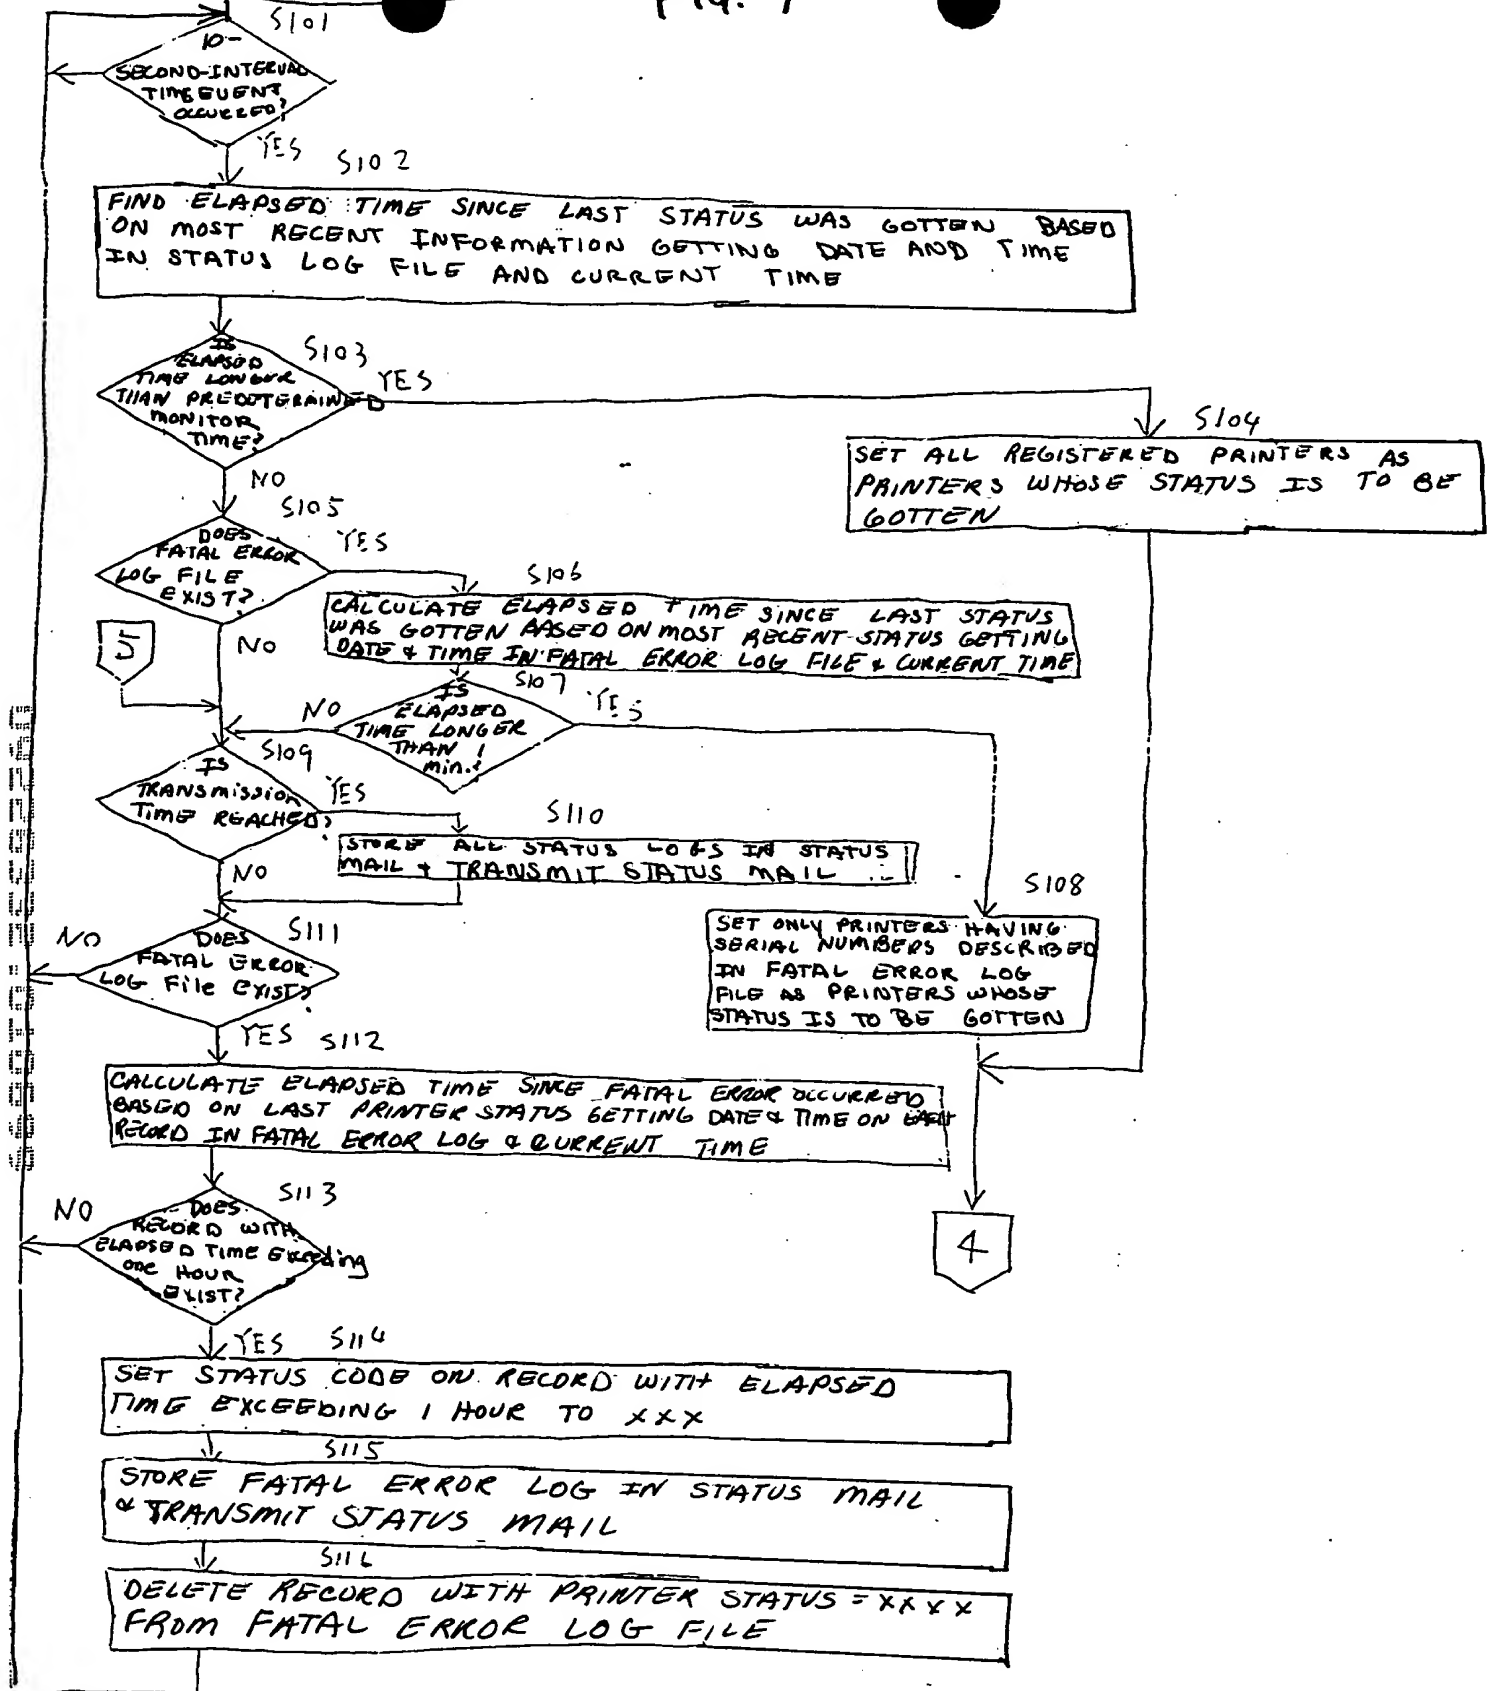 S101
10-
SECOND-INTERVAL
TIME EVENT
OCCURRED?
YES
S102
FIND ELAPSED TIME SINCE LAST STATUS WAS GOTTEN BASED
ON MOST RECENT INFORMATION GETTING DATE AND TIME
IN STATUS LOG FILE AND CURRENT TIME
S103
IS
ELAPSED
TIME LONGER
THAN PREDETERMINED
MONITOR
TIME?
YES
NO
S104
SET ALL REGISTERED PRINTERS AS
PRINTERS WHOSE STATUS IS TO BE
GOTTEN
S105
DOES
FATAL ERROR
LOG FILE
EXIST?
YES
NO
S106
CALCULATE ELAPSED TIME SINCE LAST STATUS
WAS GOTTEN BASED ON MOST RECENT STATUS GETTING
DATE & TIME IN FATAL ERROR LOG FILE & CURRENT TIME
5
S107
IS
ELAPSED
TIME LONGER
THAN 1
min.?
NO
YES
S109
IS
TRANSMISSION
TIME REACHED?
YES
NO
S110
STORE ALL STATUS LOGS IN STATUS
MAIL & TRANSMIT STATUS MAIL
S108
SET ONLY PRINTERS HAVING
SERIAL NUMBERS DESCRIBED
IN FATAL ERROR LOG
FILE AS PRINTERS WHOSE
STATUS IS TO BE GOTTEN
S111
DOES
FATAL ERROR
LOG File EXIST?
NO
YES
S112
CALCULATE ELAPSED TIME SINCE FATAL ERROR OCCURRED
BASED ON LAST PRINTER STATUS GETTING DATE & TIME ON EACH
RECORD IN FATAL ERROR LOG & CURRENT TIME
4
S113
DOES
RECORD WITH
ELAPSED TIME Exceeding
one HOUR
EXIST?
NO
YES
S114
SET STATUS CODE ON RECORD WITH ELAPSED
TIME EXCEEDING 1 HOUR TO XXX
S115
STORE FATAL ERROR LOG IN STATUS MAIL
& TRANSMIT STATUS MAIL
S116
DELETE RECORD WITH PRINTER STATUS = XXXX
FROM FATAL ERROR LOG FILE